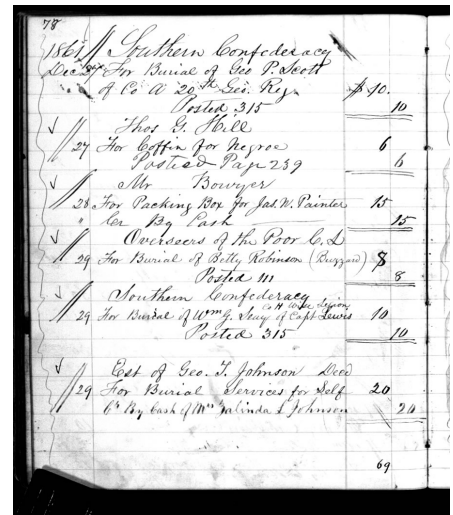 78
1861 // Southern Confederacy
Dec 27 For Burial of Geo P. Scott
of Co A 20th Geo. Reg $10.
Posted 315 10
Thos G. Hill
27 For Coffin for Negroe 6
Posted Page 239 6
Mr Bowyer
28 For Packing Box for Jas. W. Painter 15
" Cr By Cash 15
Overseers of the Poor C. L
29 For Burial of Betty Robinson (Buzzard) 8
Posted 111 8
Southern Confederacy
Co H Wise Legion
29 For Burial of Wm G. Seay of Capt Lewis 10
Posted 315 10
Est of Geo. T. Johnson Decd
29 For Burial Services for Self 20
Cr By Cash of Mrs Malinda S Johnson 20
69